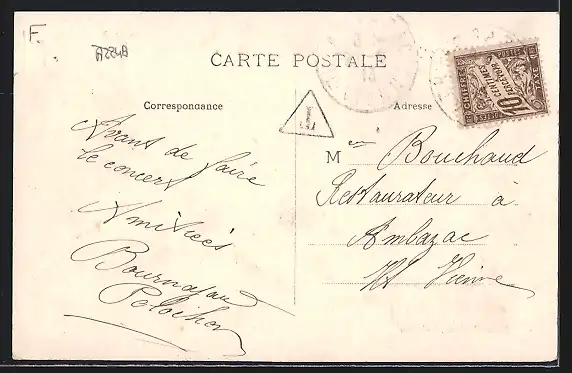 F.
CARTE POSTALE
Correspondance
Adresse
T
10
CENTIMES
A PERCEVOIR
CHIFFRE
TAXE
Avant de faire
le concert
Amitiés
M Bouchaud
Restaurateur à
Ambazac
Hte Vienne